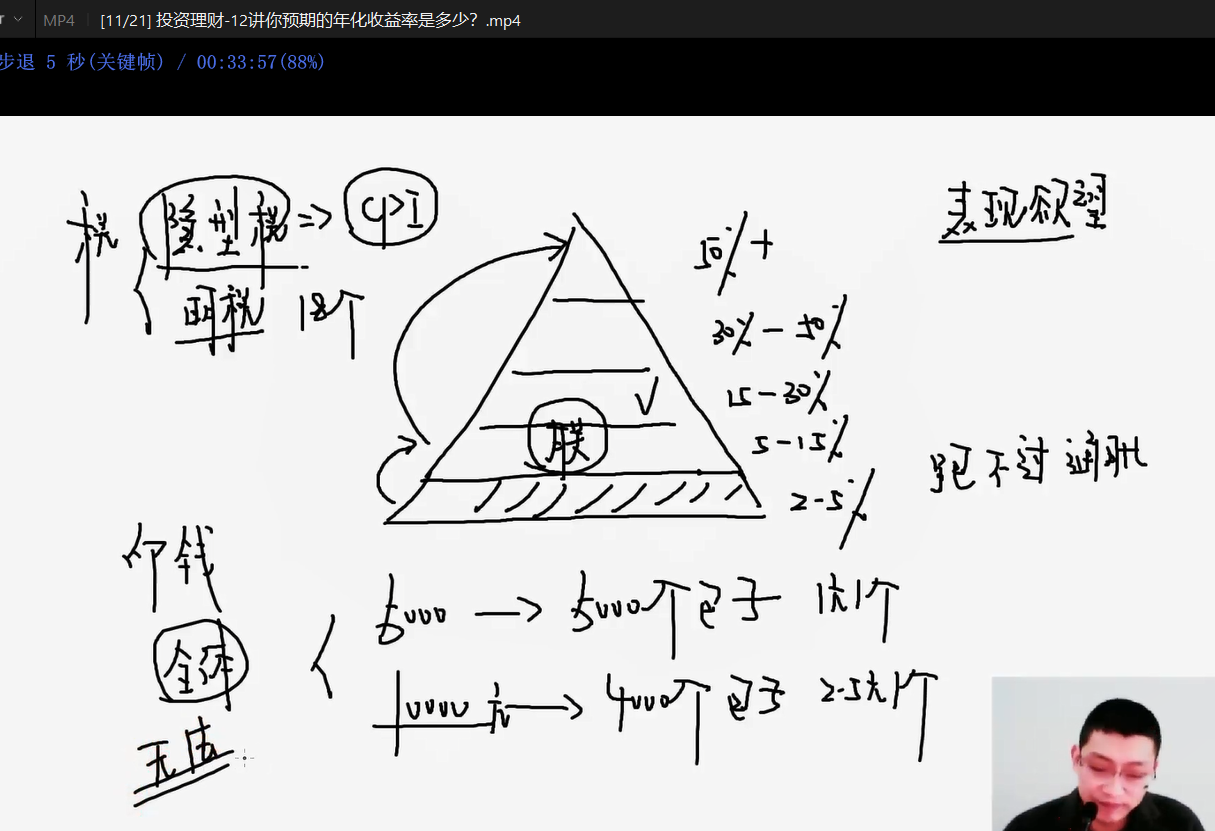 MP4 [11/21] 投资理财-12讲你预期的年化收益率是多少？.mp4
步退 5 秒(关键帧) / 00:33:57(88%)
税
隐型税 => CPI
明税 18个
表现欲望
50%+
30%-50%
15-30%
5-15%
2-5%
联
跑不过通胀
印钱
全体
5000 → 5000个包子 1元1个
10000元 → 4000个包子 2.5元1个